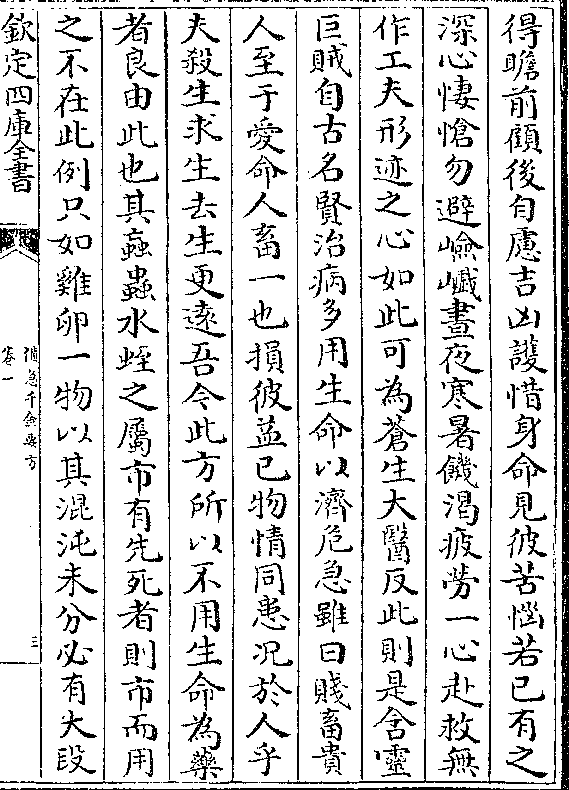 得瞻前顧後自慮吉凶護惜身命見彼苦惱若已有之
深心悽愴勿避嶮巇晝夜寒暑饑渴疲勞一心赴救無
作工夫形迹之心如此可為蒼生大醫反此則是含靈
巨賊自古名賢治病多用生命以濟危急雖曰賤畜貴
人至于愛命人畜一也損彼益已物情同患况於人乎
夫殺生求生去生更逺吾今此方所以不用生命為藥
者良由此也其䖟蟲水蛭之屬市有先死者則市而用
之不在此例只如雞卵一物以其混沌未分必有大段
欽定四庫全書
備急千金要方
卷一
三